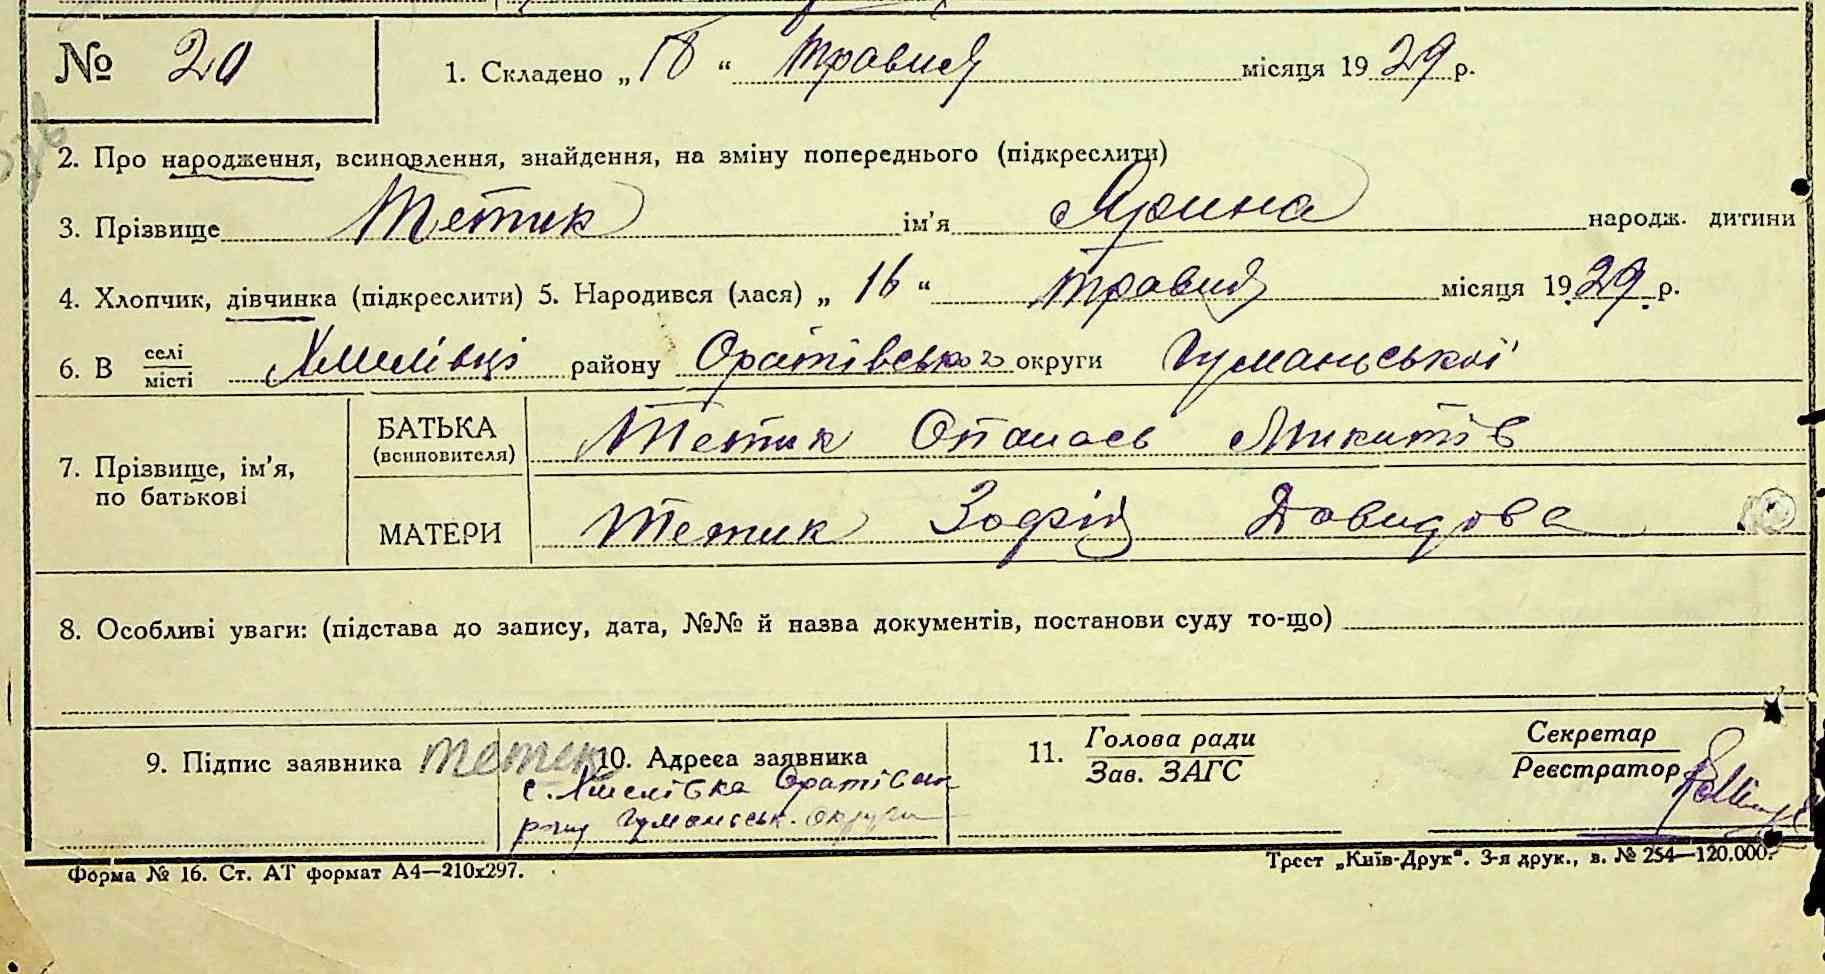 № 20
1. Складено „ 18 “ травня місяця 1929 р.
2. Про народження, всиновлення, знайдення, на зміну попереднього (підкреслити)
3. Прізвище Тетик ім’я Ярина народж. дитини
4. Хлопчик, дівчинка (підкреслити) 5. Народився (лася) „ 16 “ травня місяця 1929 р.
6. В селі місті Хмелівці району Оратівсько о округи Гуманьської
7. Прізвище, ім’я, по батькові
БАТЬКА (всиновителя) Тетик Опанась Микитів
МАТЕРИ Тетик Зофія Давидова
8. Особливі уваги: (підстава до запису, дата, №№ й назва документів, постанови суду то-що)
9. Підпис заявника Тетик
10. Адреса заявника
с. Хмелівка Оратівськ
р-ну Гуманськ. округи
11. Голова ради
Зав. ЗАГС
Секретар
Реєстратор
Форма № 16. Ст. АТ формат А4—210х297.
Трест „Київ-Друк“. 3-я друк., в. № 254—120.000.